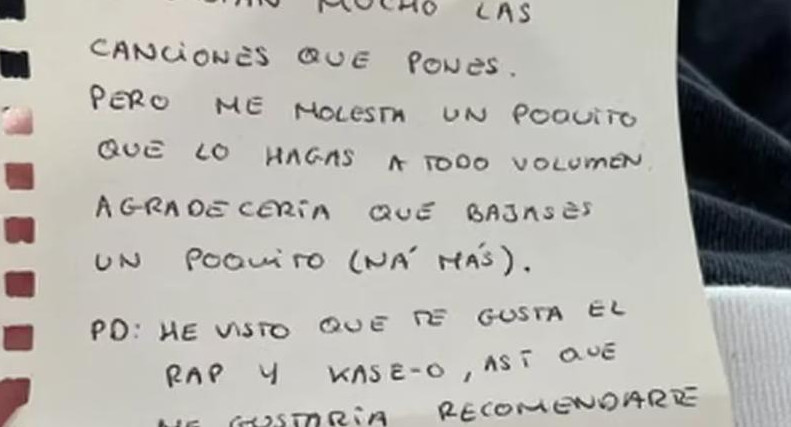 MUCHO LAS
CANCIONES QUE PONES.
PERO ME MOLESTA UN POQUITO
QUE LO HAGAS A TODO VOLUMEN.
AGRADECERÍA QUE BAJASES
UN POQUITO (NA' MÁS).
PD: HE VISTO QUE TE GUSTA EL
RAP Y KASE-O, ASÍ QUE
ME GUSTARÍA RECOMENDARTE